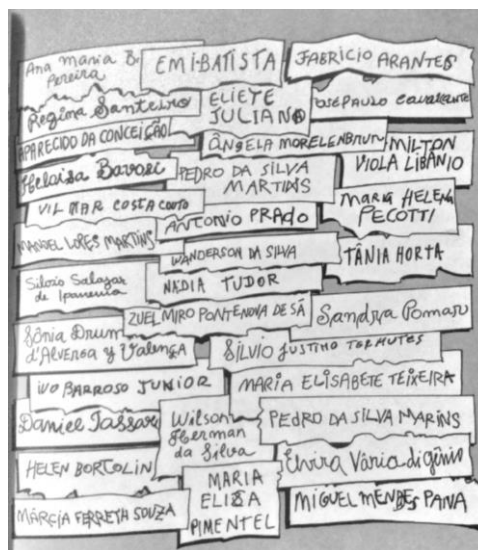 Ana Maria B.
Pereira
EMI-BATISTA
FABRICIO ARANTES
Regina Santeiro
ELIETE
JULIANO
JOSE PAULO Cavalcante
APARECIDO DA CONCEIÇÃO
ÂNGELA MORELENBRUM
MILTON
VIOLA LIBÂNIO
Heloisa Bavari
PEDRO DA SILVA
MARTINS
VILMAR COSTA COUTO
ANTONIO PRADO
MARIA HELENA
PECOTTI
MANOEL LOPES MARTINS
WANDERSON DA SILVA
TÂNIA HORTA
Silvio Salazar
de Ipanema
NADIA TUDOR
ZUEL MIRO PONTENOVA DE SÁ
Sandra Pomar
Sônia Drum
d'Alverga y Valença
SÍLVIO JUSTINO
IVO BARROSO JUNIOR
MARIA ELISABETE TEIXEIRA
Daniel Tassari
Wilson
Herman
da Silva
PEDRO DA SILVA MARINS
HELEN BORTOLIN
Elvira Vária digênio
MARIA
ELIZA
PIMENTEL
MÁRCIA FERRETH SOUZA
MIGUEL MENDES PANA